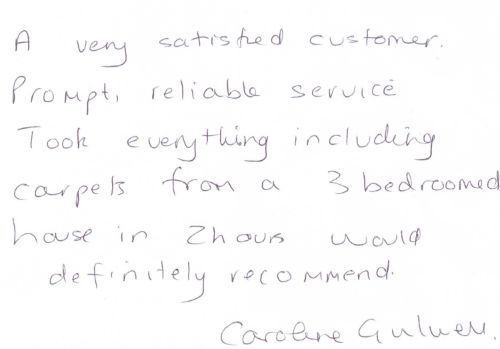 A very satisfied customer.
Prompt, reliable service
Took everything including
carpets from a 3 bedroomed
house in 2 hours would
definitely recommend.
Caroline